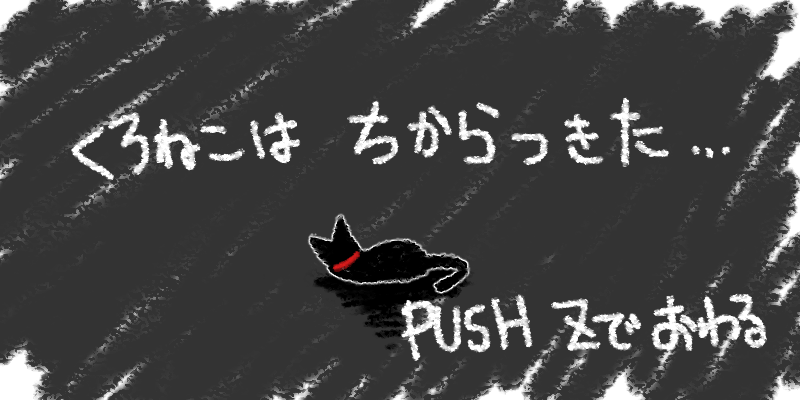 くろねこは ちからつきた...
PUSH Zで おわる